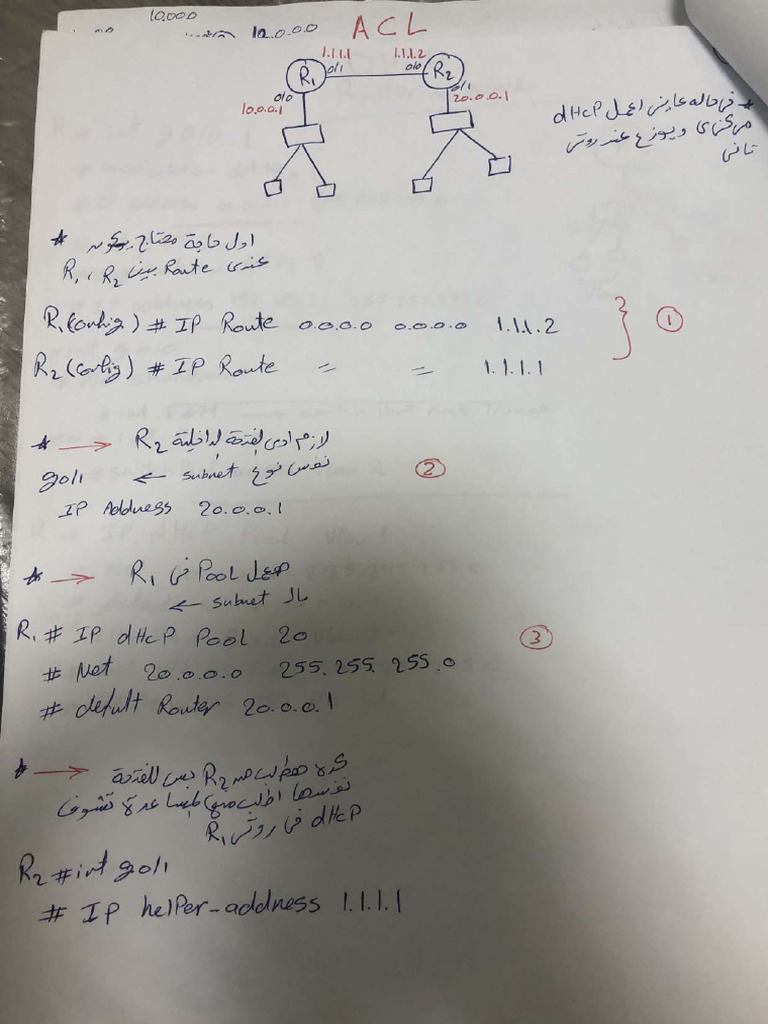 10.0.0.0
10.0.0.0
ACL
1.1.1.1 1.1.1.2
R1 0/1 0/0 R2
0/0 0/1
10.0.0.1 20.0.0.1
* فى حاله عايز اعمل dHcP
مركزى ويوزع عند روتر
تانى
* اول حاجة محتاج يكون
عندى Route بين R1 , R2
R1(config) # IP Route 0.0.0.0 0.0.0.0 1.1.1.2
R2(config) # IP Route = = 1.1.1.1
1
* → لازم ادى لفتحة الداخلية R2
نفس نوع subnet ← go/1
2
IP Address 20.0.0.1
* → هعمل Pool فى R1
بال subnet ←
R1 # IP dHcP Pool 20
3
# Net 20.0.0.0 255.255.255.0
# defult Router 20.0.0.1
* → كده هطلب من R2 بس للفتحة
نفسها اطلب منها المساعدة تشوف
dHcP فى روتر R1
R2 #int go/1
# IP helper-address 1.1.1.1